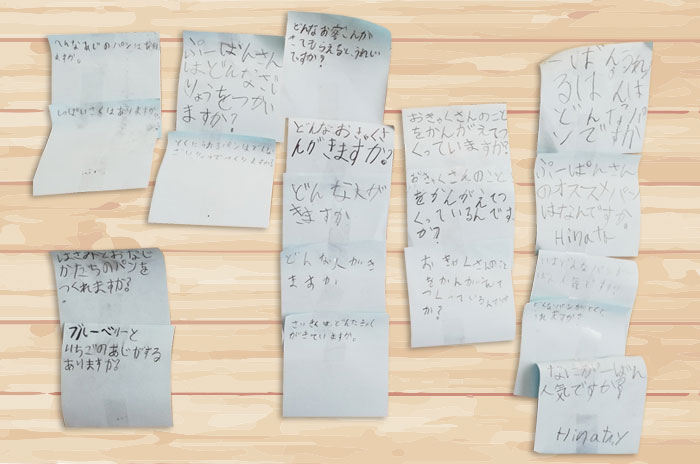 へんなあじのパンはあり
ますか。
しっぱいさくはありますか。
ぷーぱんさん
はどんなざい
りょうをつかい
ますか?
どんなお客さんが
きてもらえると、うれしい
ですか?
どんなおきゃくさ
んがきますか?
どんな人が
きますか
どんな人がき
ますか
さいきんは、どんなきゃく
がきていますか。
おきゃくさんのこと
をかんがえてつ
くっていますか?
おきゃくさんのこと
をかんがえてつ
くっているんです
か?
おきゃくさんのこと
をかんがえて
つくっているんです
か?
一ばんうれ
るぱんは
どんなパ
ンですか
ぷーぱんさん
のオススメパン
はなんですか。
Hinata
なにが一ばん
人気ですか?
Hinata.Y
はさみとおなじ
かたちのパンを
つくれますか?
ブルーベリーと
いちごのあじがする
ありますか?